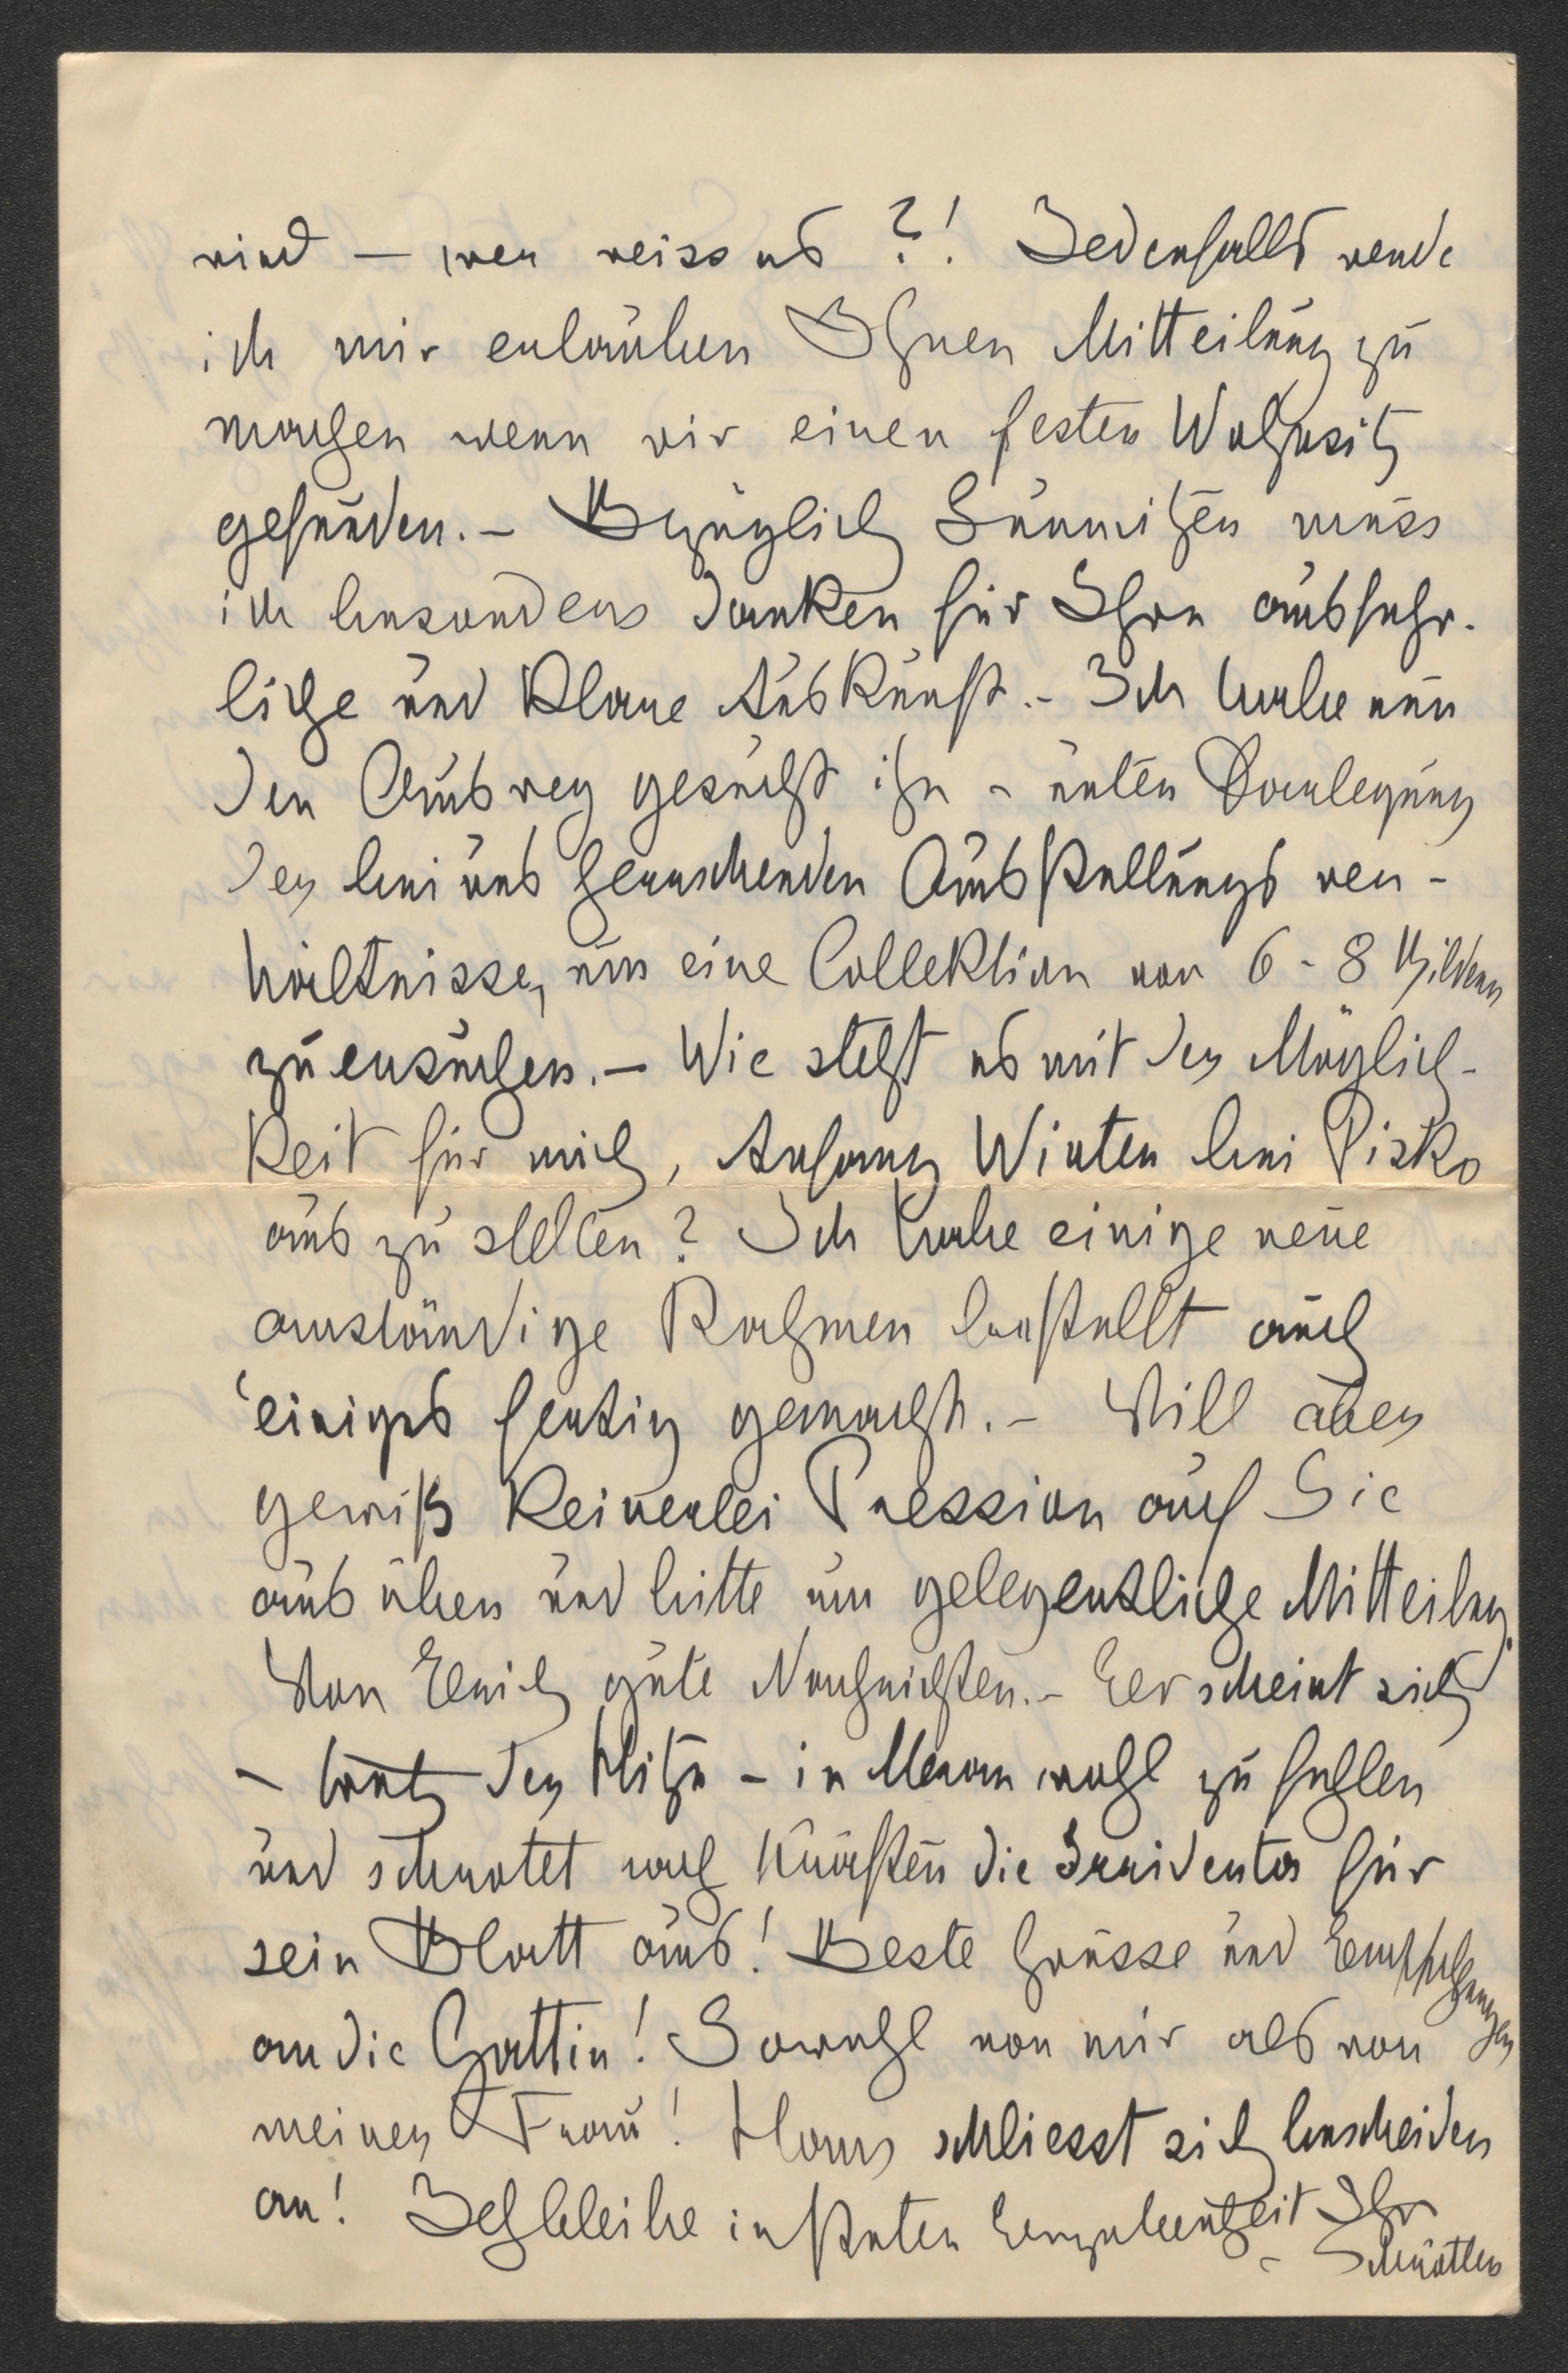 wird — wer weiss es ?! Jedenfalls werde
ich mir erlauben Ihnen Mitteilung zu
machen wenn wir einen festen Wohnsitz
gefunden. – Bezüglich muss
ich besonders danken für Ihre ausführ-
liche und klare Auskunft. – Ich habe nun
den Ausweg gesucht ihn – unter Darlegung
der bei uns herrschenden Ausstellungs ver-
hältnisse, um eine Collektion von 6 - 8 Bildern
zu ersuchen. – Wie steht es mit der Möglich-
keit für mich, Anfang Winter bei Pisko
aus zu stellen? Ich habe einige neue
anständige Rahmen bestellt auch
einiges fertig gemacht. – Will aber
gewiß keinerlei Pression auf Sie
aus üben und bitte um gelegentliche Mitteilung.
Von Erich gute Nachrichten. – Er scheint sich
– trotz der Hitze – in Meran wohl zu fühlen
und schrotet nach Kräften die Irridenta für
sein Blatt aus! Beste Grüsse und Empfehlungen
an die Gattin! Sowohl von mir als von
meiner Frau! Hans schliesst sich bescheiden
an! Ich bleibe in steter Ergebenheit Ihr
–